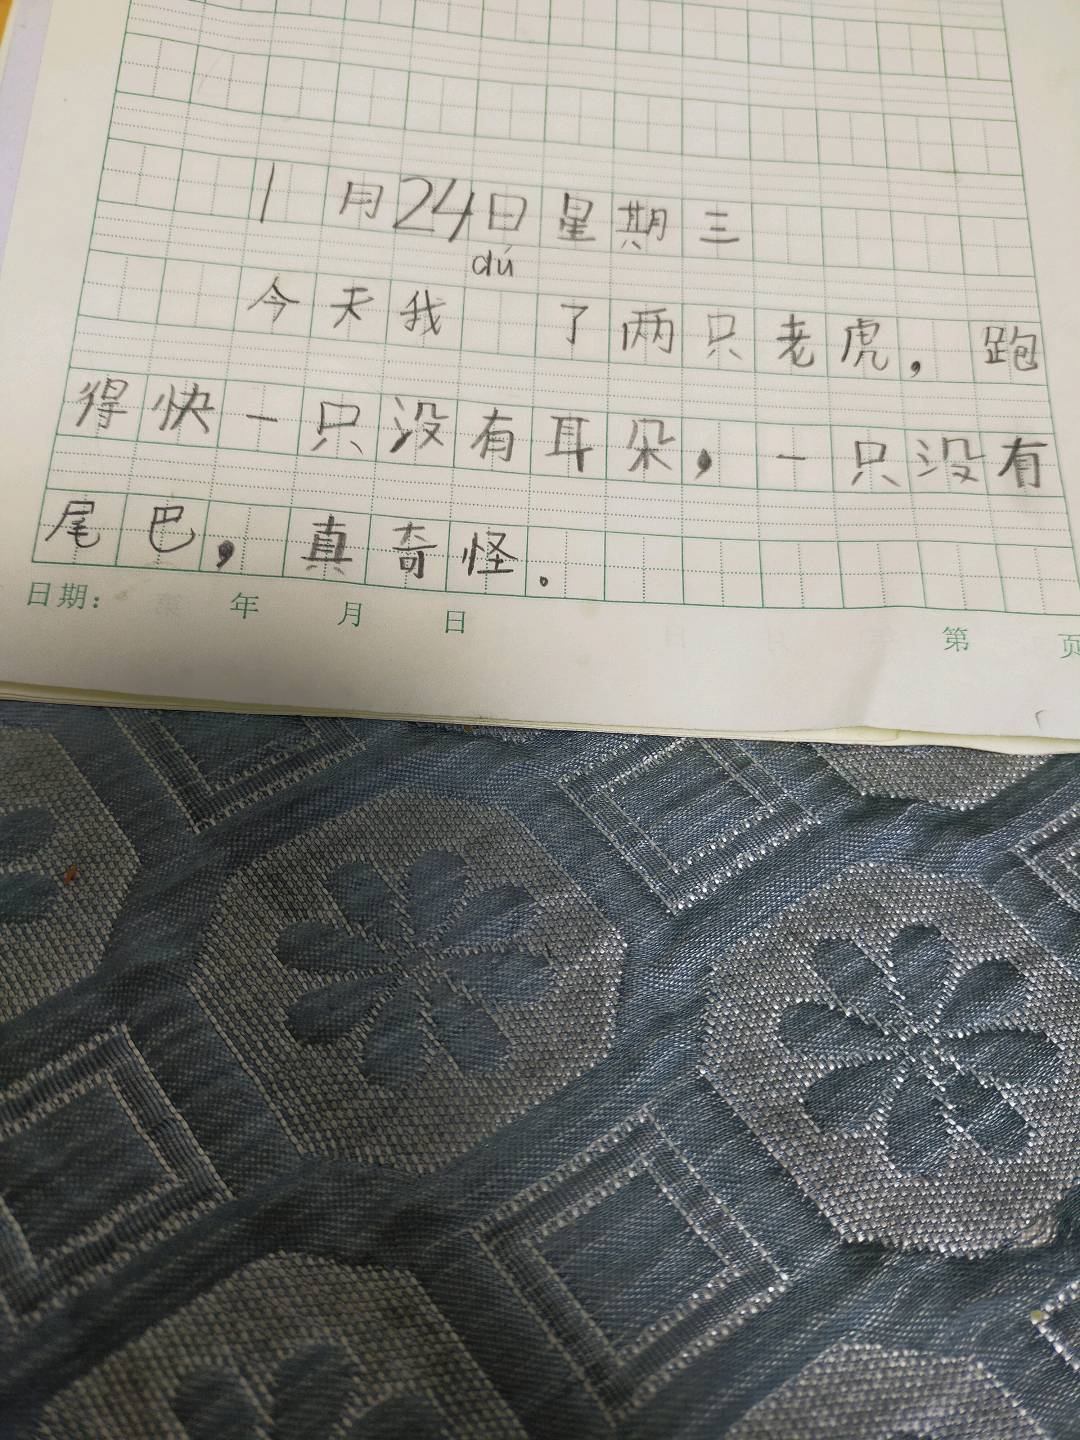 1月24日星期三
dú
今天我 了两只老虎，跑
得快一只没有耳朵，一只没有
尾巴，真奇怪.
日期: 年 月 日 第 页